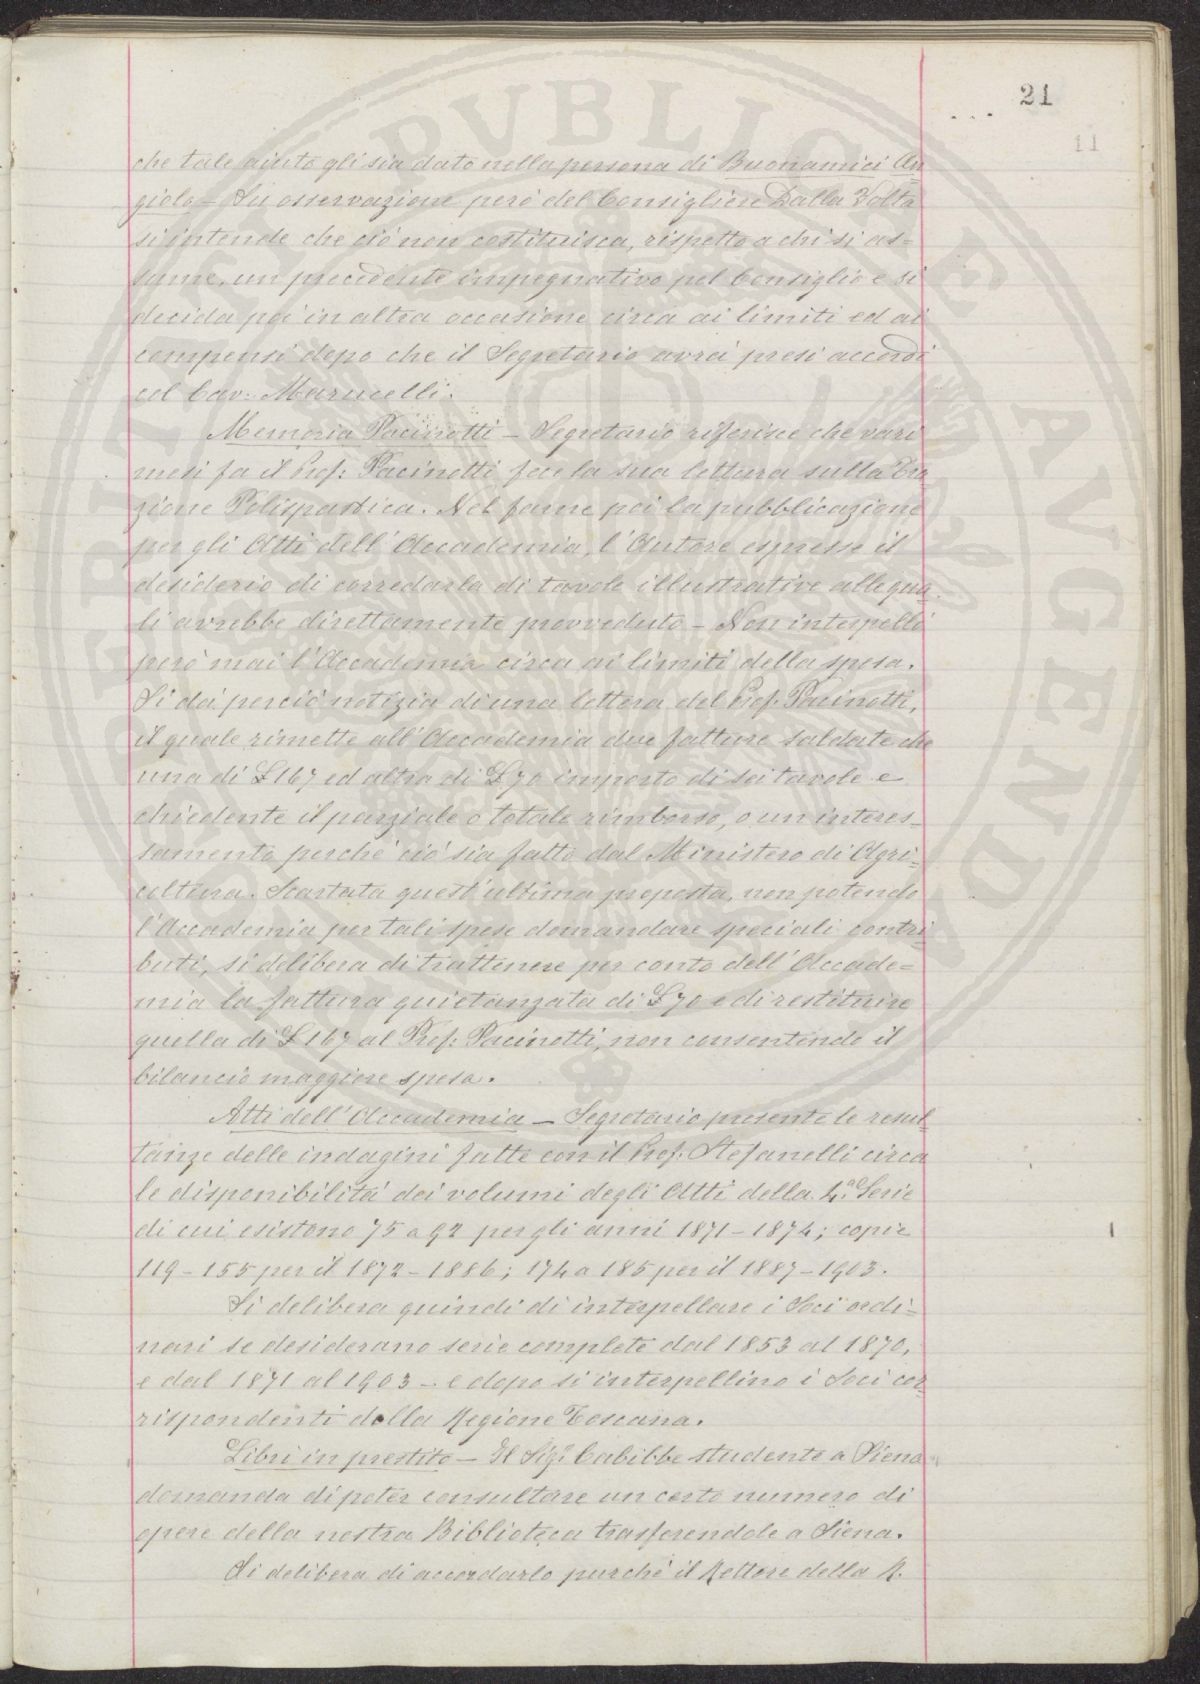 21
11
che tale aiuto gli sia dato nella persona di Buonamici An
giolo – Su osservazione però del Consigliere Dalla Volta
si intende che ciò non costituisca, rispetto a chi si as=
sume, un precedente impegnativo pel Consiglio e si
decida poi in altra occasione circa ai limiti ed ai
compensi dopo che il Segretario avrà presi accordi
col Cav: Marucelli.
Memoria Pacinotti – Segretario riferisce che vari
mesi fa il Prof: Pacinotti fece la sua lettura sulla Tra
zione Polispastica. Nel farne poi la pubblicazione
per gli Atti dell'Accademia, l'Autore espresse il
desiderio di corredarla di tavole illustrative alle qua
li avrebbe direttamente provveduto – Non interpellò
però mai l'Accademia circa ai limiti della spesa.
Si dà perciò notizia di una lettera del Prof. Pacinotti,
il quale rimette all'Accademia due fatture saldate che
una di £ 167 ed altra di £ 70 importo di sei tavole e
chiedente il parziale o totale rimborso, o un interes=
samento perché ciò sia fatto dal Ministero di Agri=
coltura. Scartata quest'ultima proposta, non potendo
l'Accademia per tali spese domandare speciali contri
buti, si delibera di trattenere per conto dell'Accade=
mia la fattura quietanzata di £ 70 e di restituire
quella di £ 167 al Prof: Pacinotti, non consentendo il
bilancio maggiore spesa.
Atti dell'Accademia – Segretario presenta le resul
tanze delle indagini fatte con il Prof. Stefanelli circa
le disponibilità dei volumi degli Atti della 4.a Serie
di cui esistono 75 a 92 per gli anni 1871 – 1874; copie
119 – 155 per il 1872 – 1886; 174 a 185 per il 1887 – 1903.
Si delibera quindi di interpellare i Soci ordi=
nari se desiderano serie complete dal 1853 al 1870,
e dal 1871 al 1903 – e dopo si interpellino i Soci cor
rispondenti della Regione Toscana.
Libri in prestito – Il Sigr Cabibbe studente a Siena
domanda di poter consultare un certo numero di
opere della nostra Biblioteca trasferendole a Siena.
Si delibera di accordarlo purché il Rettore della R.